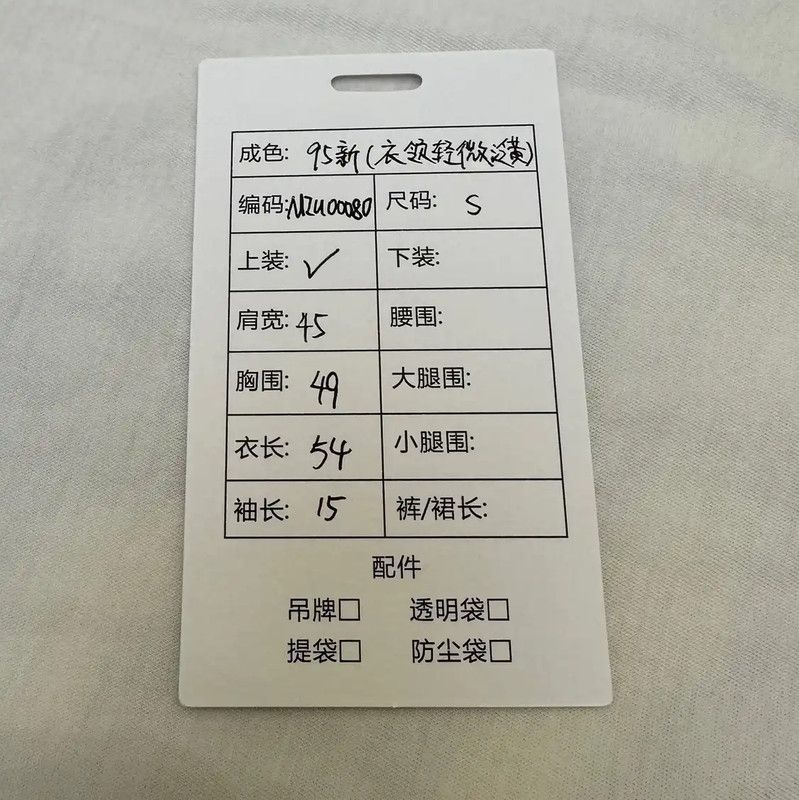 成色: 95新(衣领轻微泛黄)
编码: MZU00080 尺码: S
上装: ✓ 下装:
肩宽: 45 腰围:
胸围: 49 大腿围:
衣长: 54 小腿围:
袖长: 15 裤/裙长:
配件
吊牌□ 透明袋□
提袋□ 防尘袋□